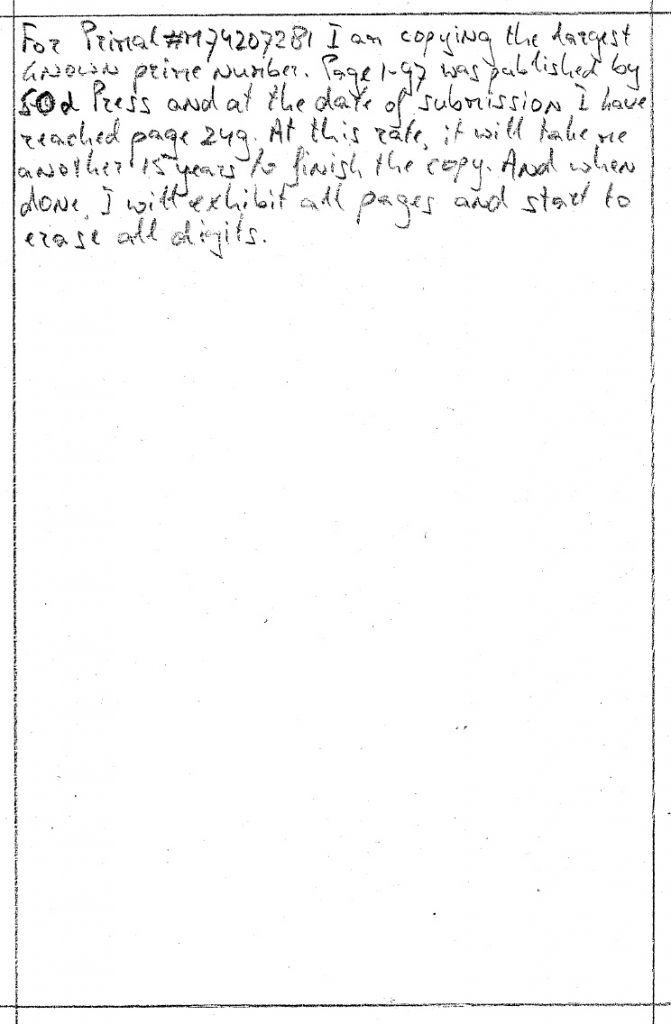 For Primal #M74207281 I am copying the largest
known prime number. Page 1-97 was published by
50d Press and at the date of submission I have
reached page 249. At this rate, it will take me
another 15 years to finish the copy. And when
done, I will exhibit all pages and start to
erase all digits.